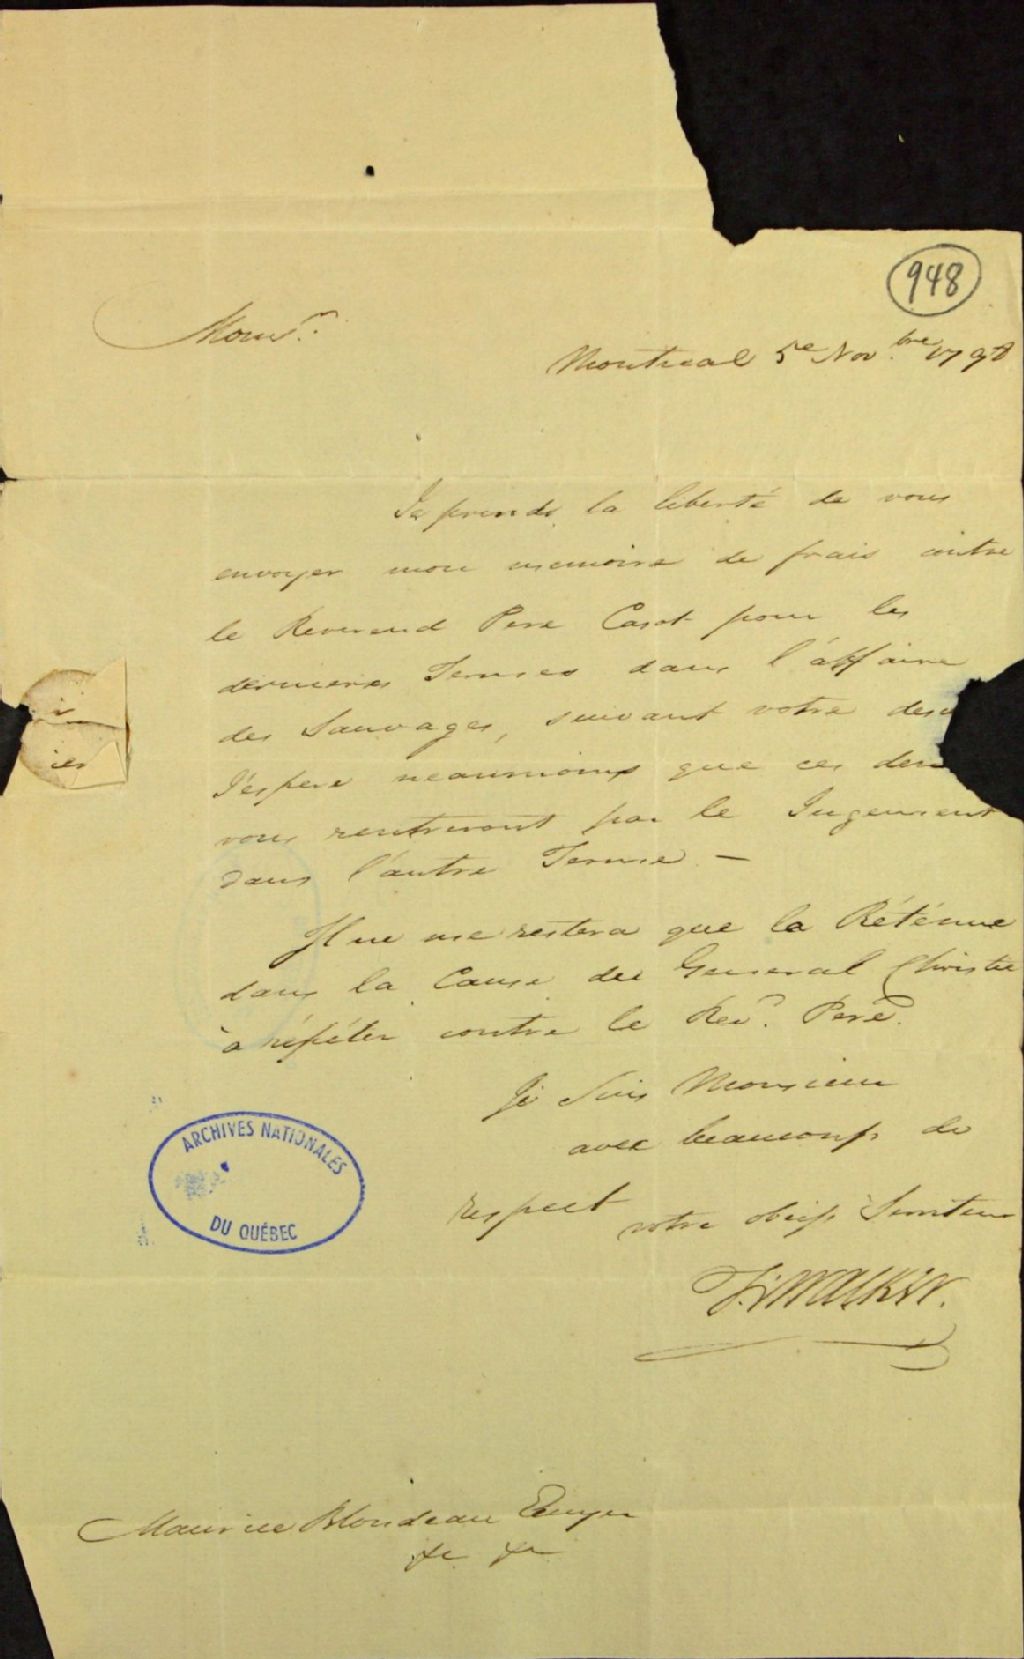 948
Monsr.
Montreal 5e Novbre 1798
Je prends la liberté de vous
envoyer mon memoire de frais contre
le Reverend Pere Casot pour les
derniers Termes dans l'affaire
des Sauvages, suivant votre
J'espere neanmoins que ces
vous rentreront par le Jugement
dans l'autre Terme —
Il ne me restera que la Réténue
dans la Cause du General Christie
à répéter contre le Revd. Pere.
Je suis Monsieur
avec beaucoup de
respect
votre Serviteur
Walker.
ARCHIVES NATIONALES
DU QUÉBEC
Maurice Blondeau Ecuyer
&c &c